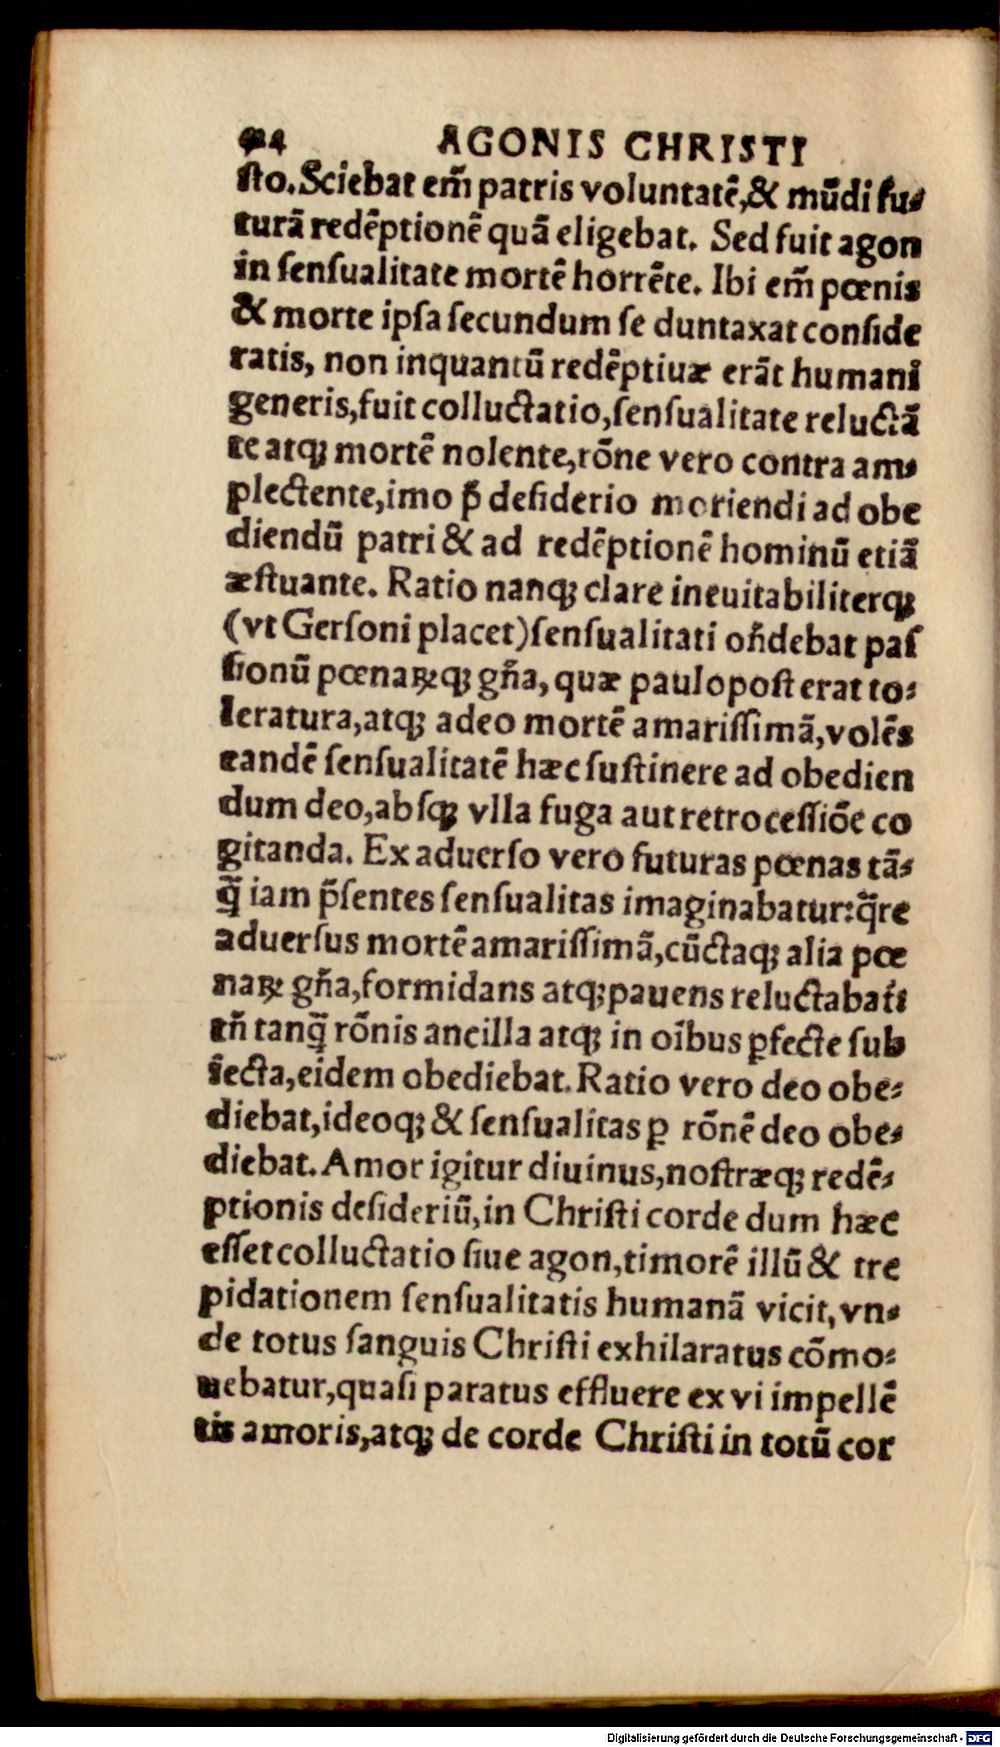 AGONIS CHRISTI
ſto. Sciebat em̃ patris voluntatē, & mūdi fu⸗
turā redēptionē quā eligebat. Sed fuit agon
in ſenſualitate mortē horrēte. Ibi em̃ pœnis
& morte ipſa ſecundum ſe duntaxat conſide
ratis, non inquantū redēptiuæ erāt humani
generis, fuit colluctatio, ſenſualitate reluctā
te atqꝫ mortē nolente, rōne vero contra am⸗
plectente, imo p̄ deſiderio moriendi ad obe
diendū patri & ad redēptionē hominū etiā
æſtuante. Ratio nanqꝫ clare ineuitabiliterqꝫ
(vt Gerſoni placet) ſenſualitati oñdebat paſ
ſionū pœnaꝝqꝫ gña, quæ paulopoſt erat to⸗
leratura, atqꝫ adeo mortē amariſſimā, volēs
eandē ſenſualitatē hæc ſuſtinere ad obedien
dum deo, abſqꝫ vlla fuga aut retroceſſiōe co
gitanda. Ex aduerſo vero futuras pœnas tā⸗
q̄ iam p̄ſentes ſenſualitas imaginabatur: q̄re
aduerſus mortē amariſſimā, cūctaqꝫ alia pœ
naꝝ gña, formidans atqꝫ pauens reluctabat̃:
tñ tanq̄ rōnis ancilla atqꝫ in oībus ꝑfecte ſub
iecta, eidem obediebat. Ratio vero deo obe⸗
diebat, ideoqꝫ & ſenſualitas ꝑ rōnē deo obe⸗
diebat. Amor igitur diuinus, noſtræqꝫ redē⸗
ptionis deſideriū, in Chriſti corde dum hæc
eſſet colluctatio ſiue agon, timorē illū & tre
pidationem ſenſualitatis humanā vicit, vn⸗
de totus ſanguis Chriſti exhilaratus cōmo⸗
uebatur, quaſi paratus effluere ex vi impellē
tis amoris, atqꝫ de corde Chriſti in totū cor
Digitalisierung gefördert durch die Deutsche Forschungsgemeinschaft - DFG